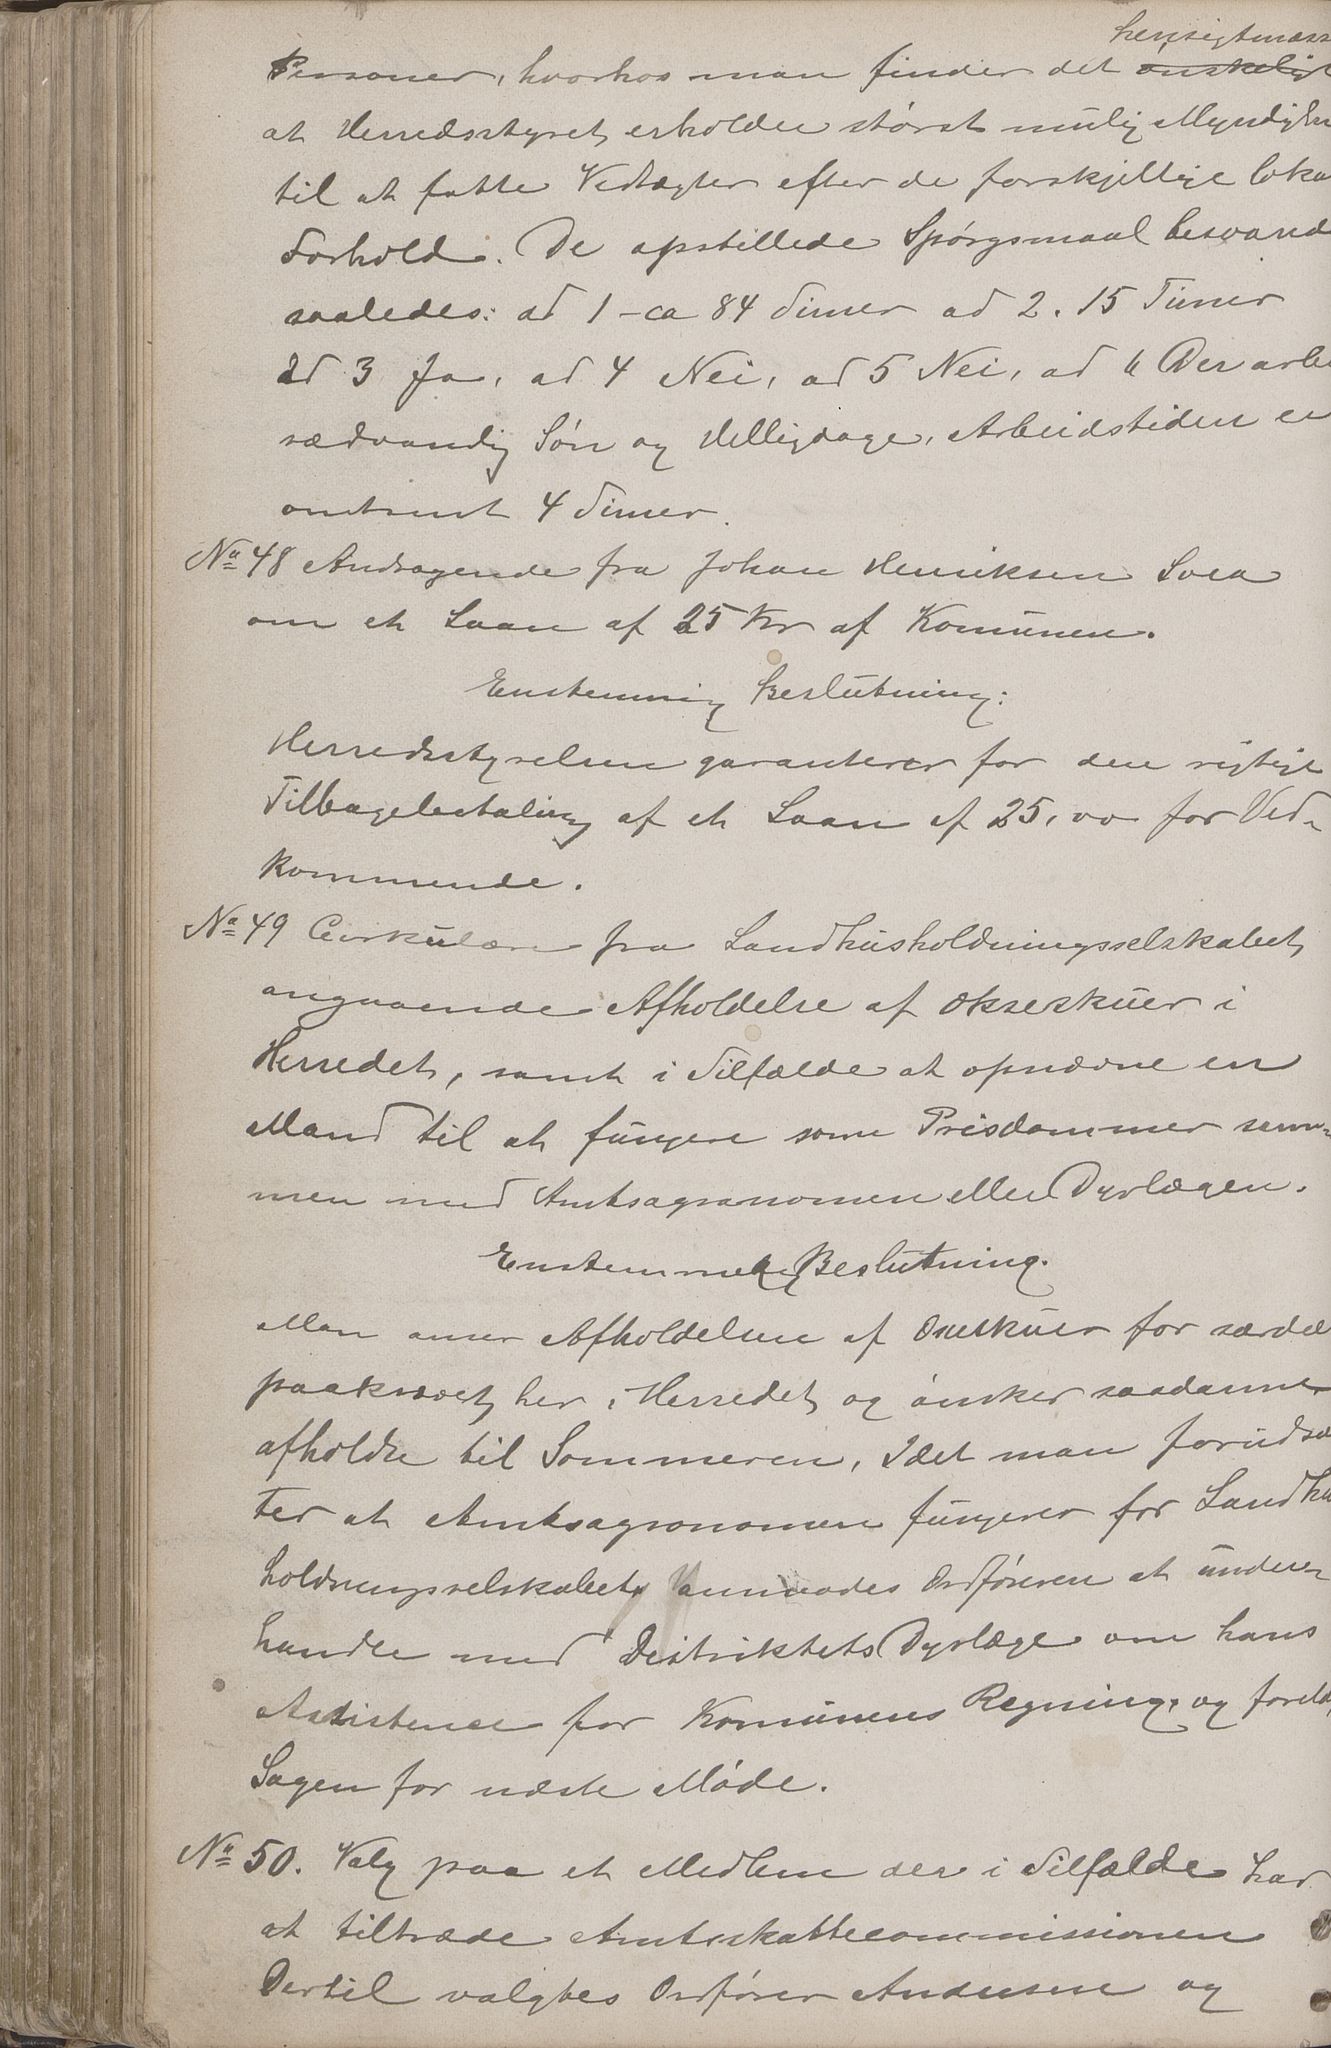 hensigtmæss
Personer, hvorhos man finder det ønskeligt
at Herredsstyret erholder størst mulig Myndighe
til at fatte Vedtægter efter de forskjellige loka
Forhold. De opstillede Spørgsmaal besvared
saaledes: ad 1 - ca 84 Timer ad 2. 15 Timer
ad 3 Ja, ad 4 Nei, ad 5 Nei, ad 6 Der arbe
sædvandlig Søn og Helligdage, Arbeidstiden er
omtrent 4 Timer.
No 48 Andragende fra Johan Henriksen
om et Laan af 25 Kr af Komunen.
Enstemmig Beslutning:
Herredsstyrelsen garanterer for den rigtige
Tilbagebetaling af et Laan af 25,00 for Ved-
kommende.
No 49 Cirkulære fra Landhusholdningsselskabet
angaaende Afholdelse af Okseskuer i
Herredet, samt i Tilfælde at opnævne en
Mand til at fungere som Prisdommer sam-
men med Amtsagronomen eller Dyrlægen.
Enstemmig Beslutning.
Man anser Afholdelsen af Oxeskuer for særde
paakrævet her i Herredet og ønsker saadanne
afholdte til Sommeren, Idet man forudsæ
ter at Amtsagronomen fungerer for Landhu
holdningsselskabet, anmodes Ordføreren at under-
handle med Distriktets Dyrlæge om hans
Assistence for Komunens Regning, og forel
Sagen for næste Møde.
No 50. Valg paa et Medlem der i Tilfælde har
at tiltræde Amtsskattecommissionen
Dertil valgtes Ordfører Andersen og